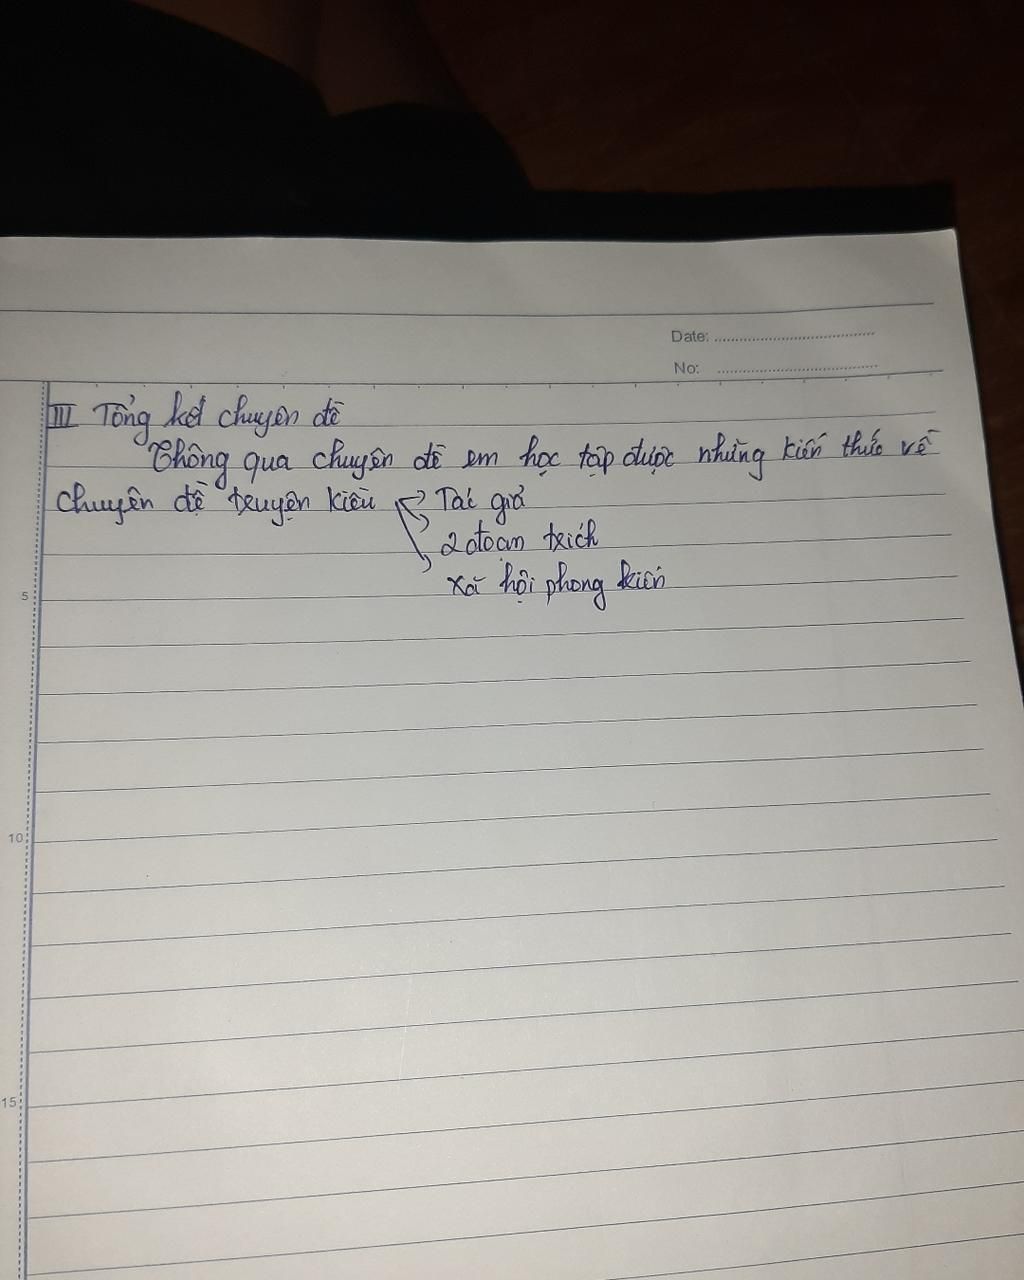 Date: ........................
No: ........................
III Tổng kết chuyên đề
Thông qua chuyên đề em học tập được những kiến thức về
chuyên đề truyện kiều → Tác giả
→ 2 đoạn trích
→ xã hội phong kiến
5
10
15